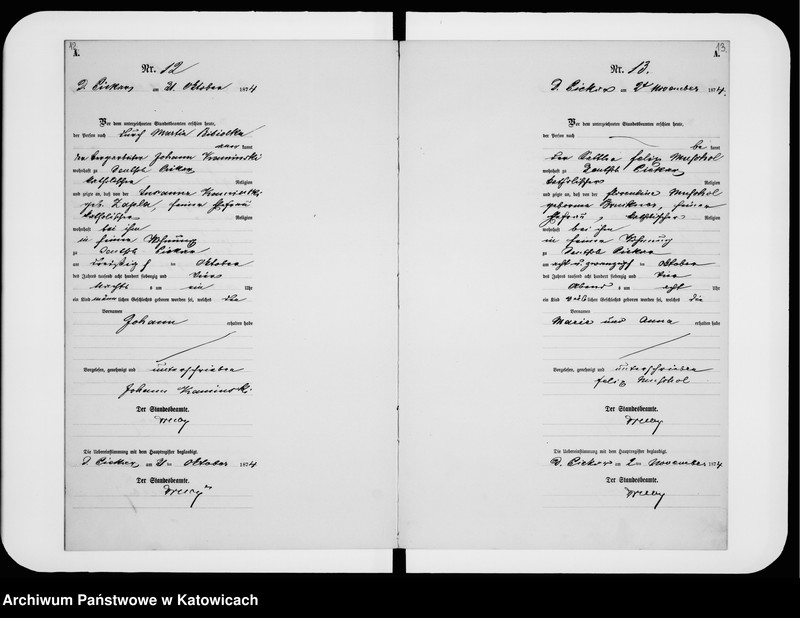 12
A.
Nr. 12
D. Piekar am 31. Oktober 1874
Vor dem unterzeichneten Standesbeamten erschien heute,
der Person nach durch Martin
kannt
der Bergarbeiter Johann Kaminski
wohnhaft zu Deutsch Piekar
katholischer Religion
und zeigte an, daß von der Susanna Kaminski
geb. seiner Ehefrau
katholischer Religion
wohnhaft bei ihm
in seiner Wohnung
zu Deutsch Piekar
am ten Oktober
des Jahres tausend acht hundert siebenzig und vier
Nachts um ein Uhr
ein Kind männlichen Geschlechts geboren worden sei, welches den
Vornamen
Johann erhalten habe
Vorgelesen, genehmigt und unterschrieben
Johann Kaminski
Der Standesbeamte.
Die Uebereinstimmung mit dem Hauptregister beglaubigt.
D. Piekar am 31 ten Oktober 1874
Der Standesbeamte.
13.
A.
Nr. 13.
D. Piekar am 2t November 1874.
Vor dem unterzeichneten Standesbeamten erschien heute,
der Person nach
be kannt
der Felix Muschol
wohnhaft zu Deutsch Piekar
katholischer Religion
und zeigte an, daß von der Florentine Muschol
geborene seiner
Ehefrau, katholischer Religion
wohnhaft bei ihm
in seiner Wohnung
zu Deutsch Piekar
am acht und zwanzigsten Oktober
des Jahres tausend acht hundert siebenzig und vier
Abend um acht Uhr
ein Kind weiblichen Geschlechts geboren worden sei, welches die
Vornamen
Marie und Anna erhalten habe
Vorgelesen, genehmigt und unterschrieben
Felix Muschol
Der Standesbeamte.
Die Uebereinstimmung mit dem Hauptregister beglaubigt.
D. Piekar am 2 ten November 1874
Der Standesbeamte.
Archiwum Państwowe w Katowicach